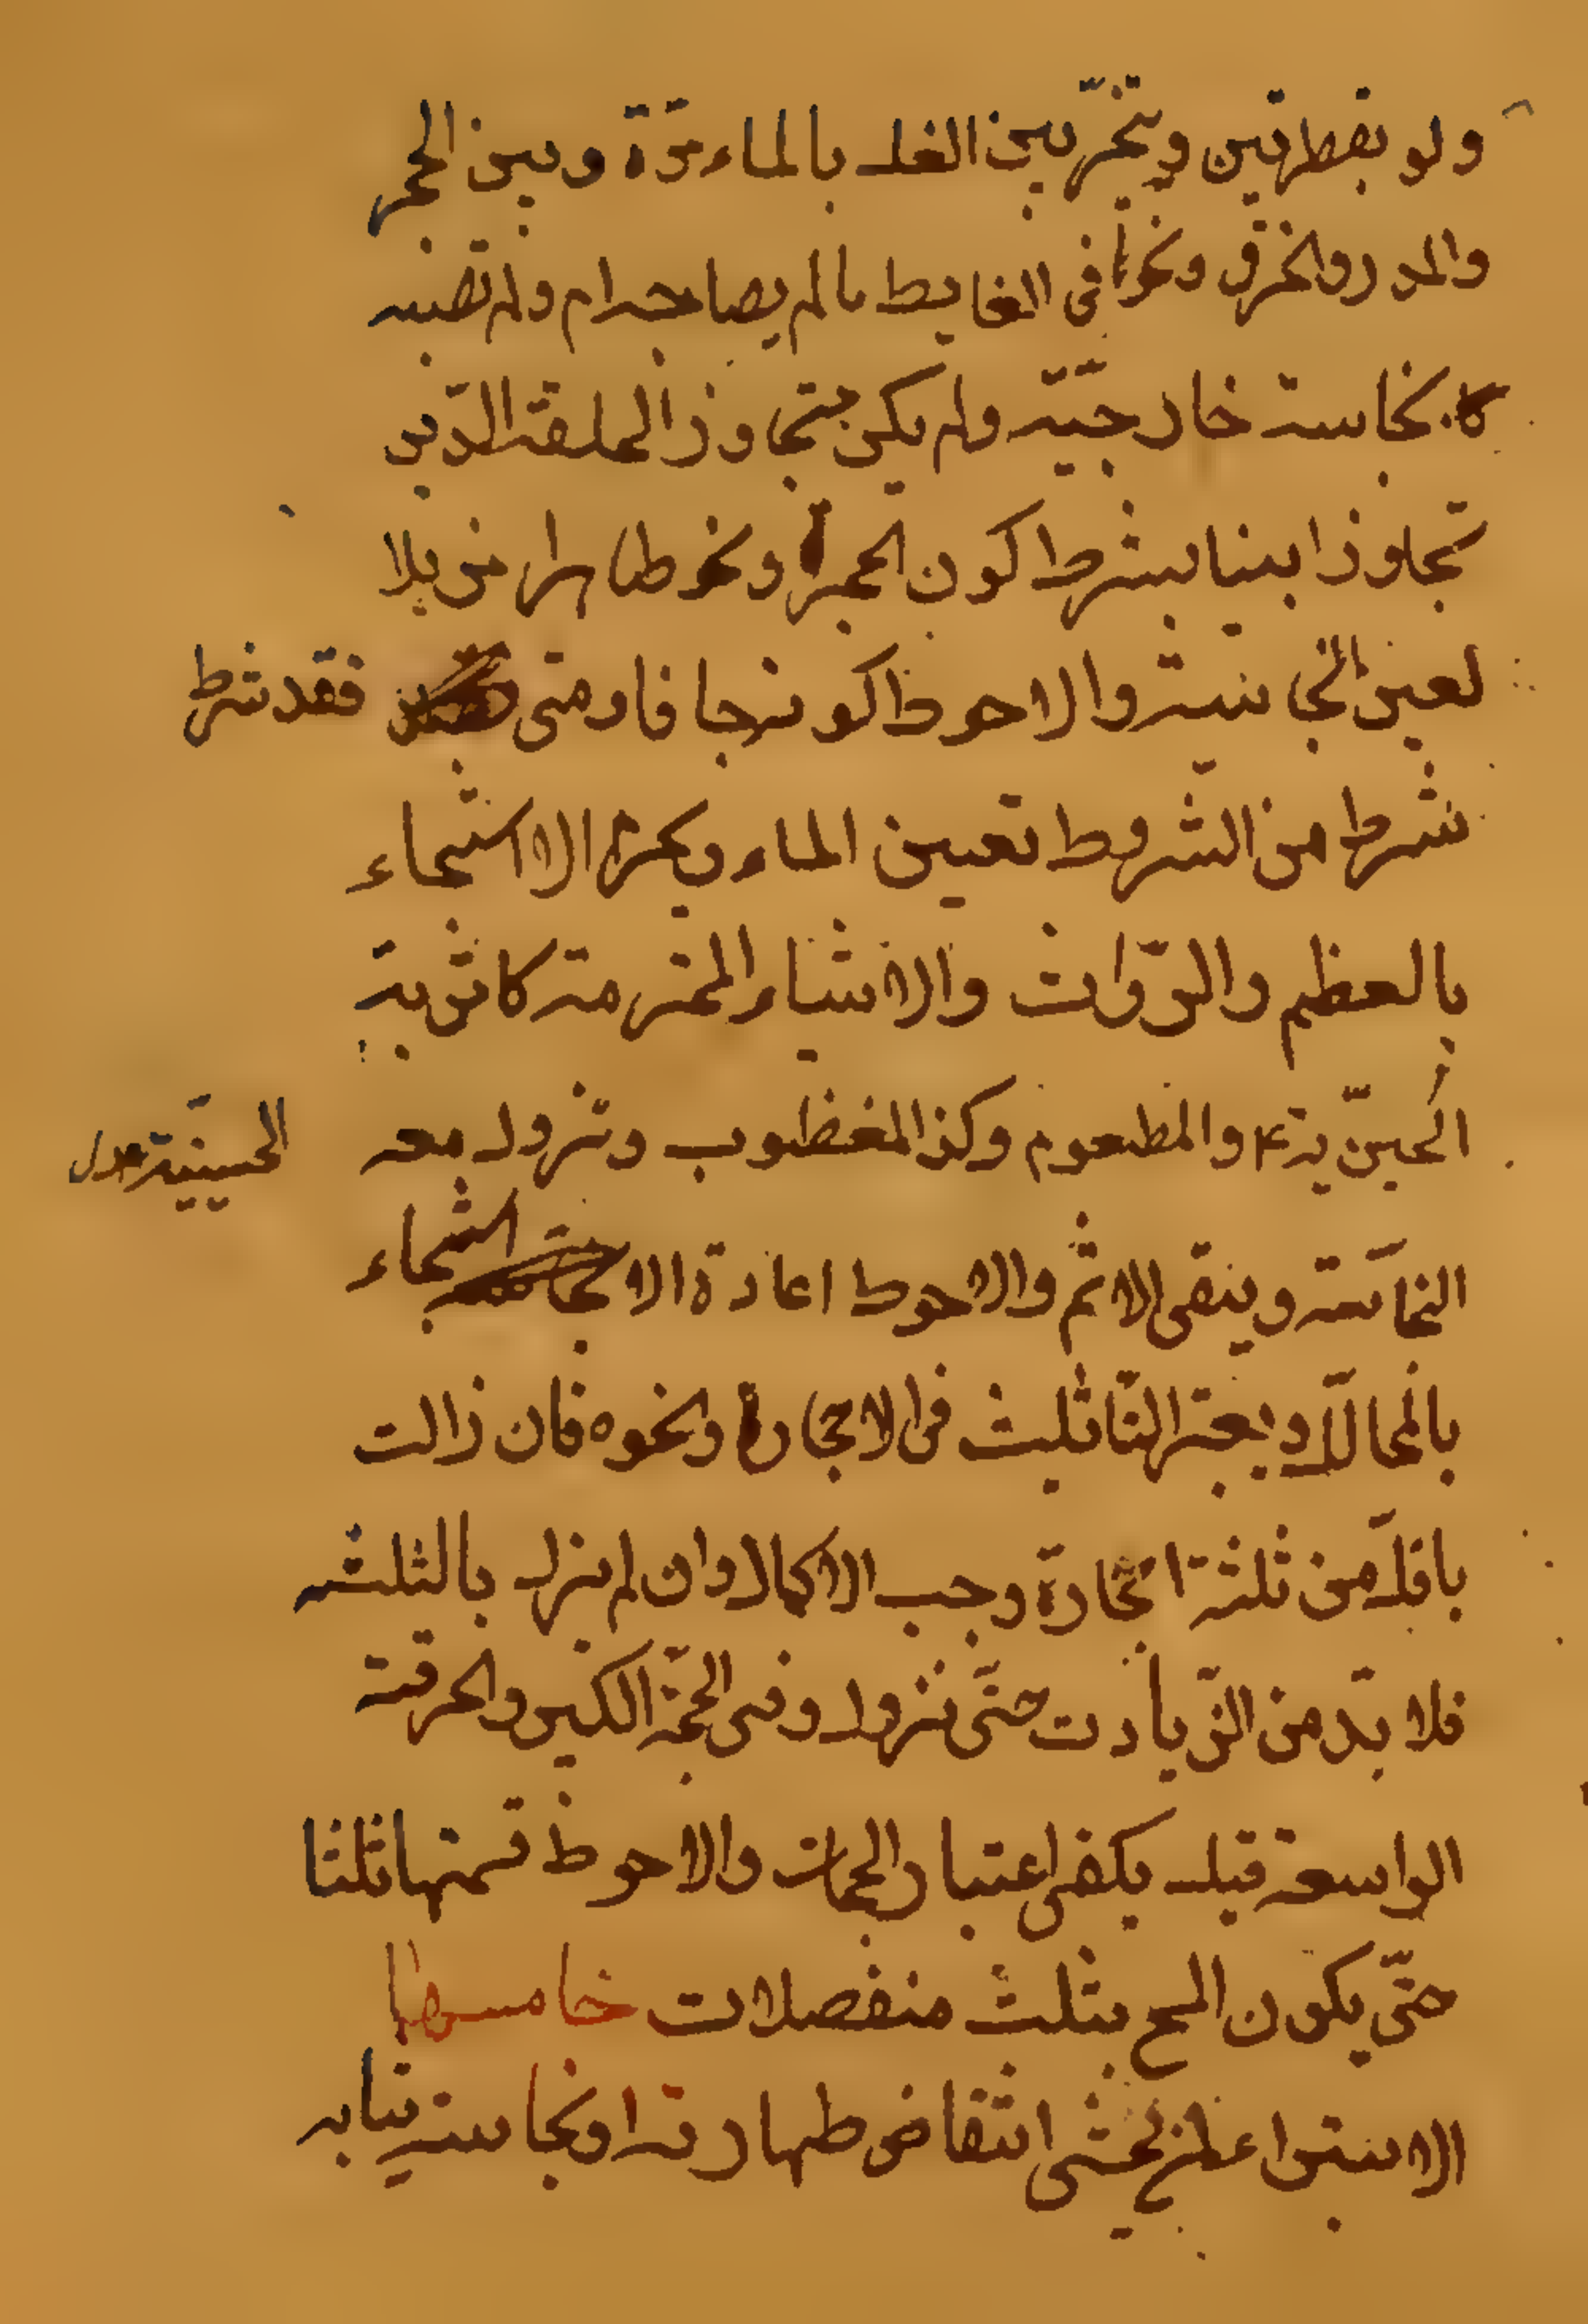 ولو بقطرتين ويتخيّر بين الغسل بالماء مرّة وبين الحجر
والمدر والخرق ونحوها في الغايط مالم يصاحبه دم ولم تصبه
نجاسة خارجيّة ولم يكن متجاوزا لحلقة الدبر
تجاوزا بينا بشرط كون الحجر ونحو طاهرا مزيلا
لعين النجاسة والاحوط كونه جافا ومتى فقد شرط
شرط من الشروط تعين الماء ويحرم الاستنجاء
بالعظم والرّوث والاشياء المحترمة كالتربة
الحسينيّة والمطعوم وكذا المغصوب وتزول معه
الحسينية
النجاسة ويبقى الاثم والاحوط اعادة الاستنجاء
بالمحلّل ويعتبر التّثليث في الاحجار ونحوه فان زالت
باقلّ من ثلثة احجارة وجب الاكمال وان لم يزل بالثلثه
فلا بدّ من الزّيادت حتّى تزول وفي الحجر الكبير والخرقة
الواسعة قيل يكفي اعتبار الجهات والاحوط قسمتها ثلثا
حتّى يكون المسح بثلث منفصلات خامسها
الاستبراء لمن يخشى انتقاض طهارته او نجاسة ثيابه